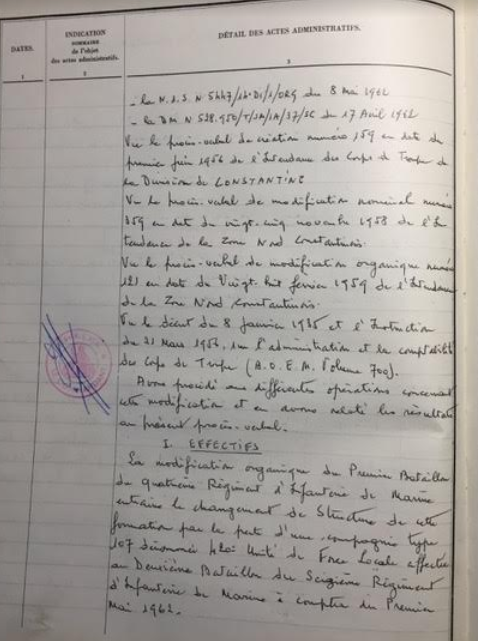 DATES.
1
INDICATION
SOMMAIRE
de l'objet
des actes administratifs.
2
DÉTAIL DES ACTES ADMINISTRATIFS.
3
- la N.D.S. N 5447/14°DI/1/ORG du 8 mai 1962
- la DM N 528.950/T/IM/1A/37/SC du 17 Avril 1962
Vu le procès-verbal de création numéro 159 en date du
premier juin 1956 de l'Intendance des Corps de Troupe de
la Division de CONSTANTINE
Vu le procès-verbal de modification nominal numéro
159 en date du vingt-cinq novembre 1958 de l'In
tendance de la Zone Nord Constantinois.
Vu le procès-verbal de modification organique numéro
121 en date du Vingt huit février 1959 de l'Intendance
de la Zone Nord Constantinois.
Vu le décret du 8 Janvier 1935 et l'Instruction
du 31 Mars 1956, sur l'administration et la comptabilité
des Corps de Troupe (B.O.E.M. Volume 700).
Avons procédé aux différentes opérations concernant
cette modification et en avons relaté les résultats
au présent procès-verbal.
I. EFFECTIFS
La modification organique du Premier Bataillon
du quatrième Régiment d'Infanterie de Marine
entraîne le changement de Structure de cette
formation par la perte d'une compagnie type
107 dénommée 420° Unité de Force Locale affectée
au Deuxième Bataillon du Seizième Régiment
d'Infanterie de Marine à compter du Premier
Mai 1962.